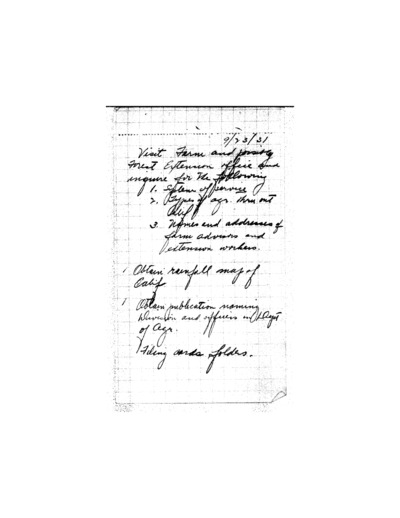 9/23/31
Visit Farm and possibly
Forest Extension office and
inquire for the following
1. System of service
2. Types of agr. thru out
Calif
3. Names and addresses of
farm advisors and
extension workers.
1 Obtain rainfall map of
Calif
1 Obtain publication naming
Division and officers in Dept
of Agr.
Filing cards & folders.